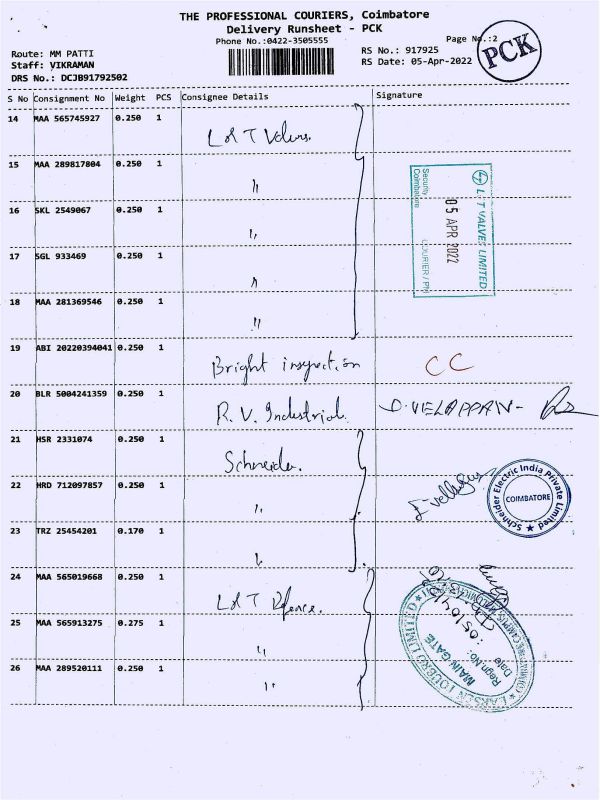 THE PROFESSIONAL COURIERS, Coimbatore
Delivery Runsheet - PCK
Phone No.:0422-3505555
Page No.:2
PCK
Route: MM PATTI
Staff: VIKRAMAN
DRS No.: DCJB91792502
RS No.: 917925
RS Date: 05-Apr-2022
S No Consignment No Weight PCS Consignee Details Signature
14 MAA 565745927 0.250 1 L & T Valves.
15 MAA 289817804 0.250 1 "
16 SKL 2549067 0.250 1 "
17 SGL 933469 0.250 1 "
18 MAA 281369546 0.250 1 "
L&T VALVES LIMITED
05 APR 2022
COURIER /
Security
Coimbatore
19 ABI 20220394041 0.250 1 Bright inspection CC
20 BLR 5004241359 0.250 1 R. V. Industrial. D. VELAPPAN -
21 HSR 2331074 0.250 1 Schneider.
22 HRD 712097857 0.250 1 "
Schneider Electric India Private Limited
COIMBATORE
23 TRZ 25454201 0.170 1 "
24 MAA 565019668 0.250 1 L & T Defence.
25 MAA 565913275 0.275 1 "
26 MAA 289520111 0.250 1 "
LARSEN & TOUBRO LIMITED
MAIN GATE
Regn.No:
Date